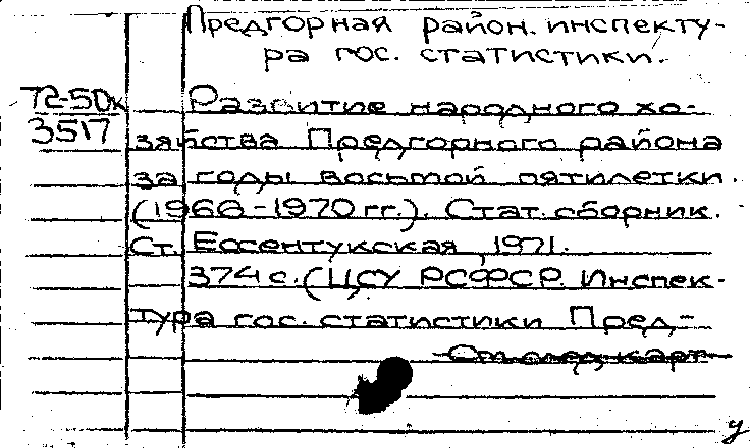 Предгорная район. инспекту-
ра гос. статистики.
72-50к
3517
Развитие народного хо-
зяйства Предгорного района
за годы восьмой пятилетки.
(1966-1970 гг.). Стат. сборник.
Ст. Ессентукская, 1971.
374 с. (ЦСУ РСФСР. Инспек-
тура гос. статистики Пред-
См. след. карт.
у